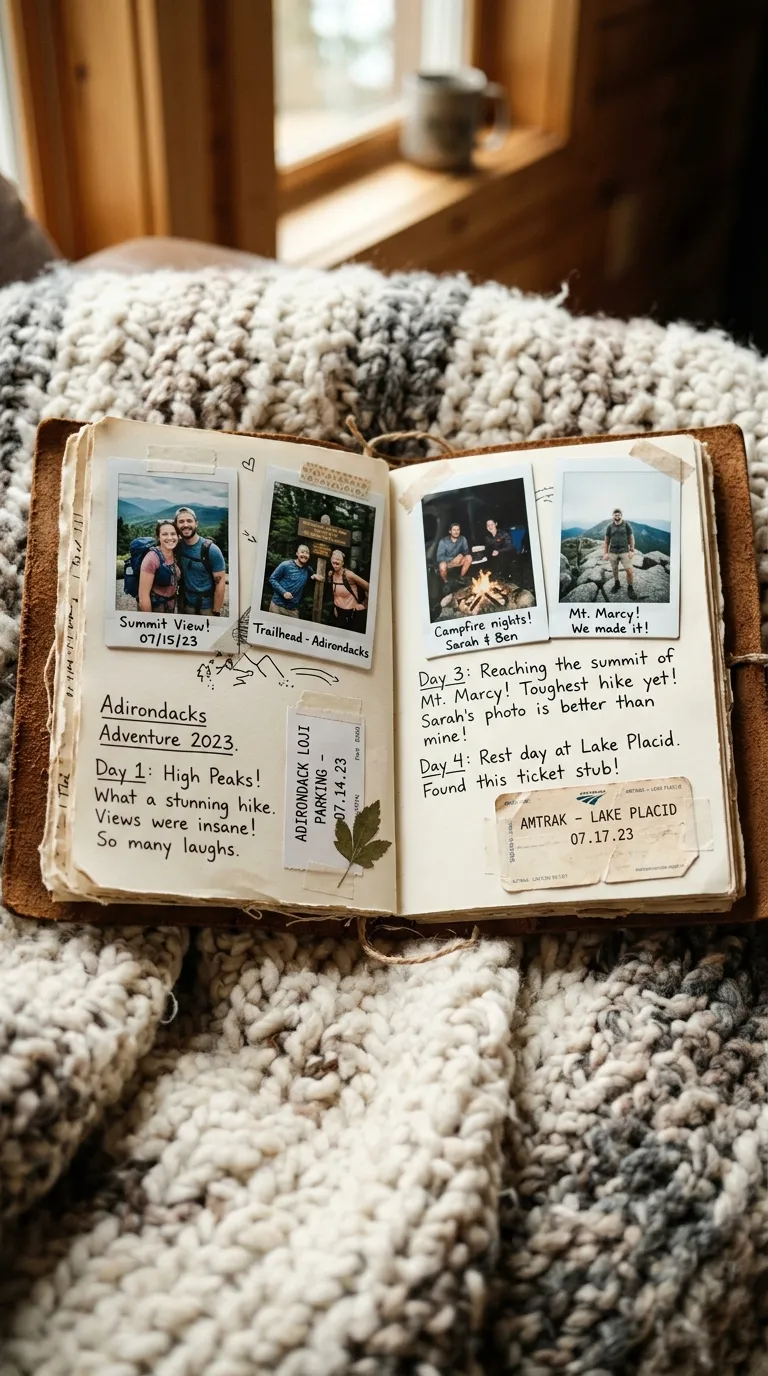 Summit View!
07/15/23
Trailhead - Adirondacks
Adirondacks
Adventure 2023.
Day 1: High Peaks!
What a stunning hike.
Views were insane!
So many laughs.
ADIRONDACK LOJI
PARKING -
07.14.23
Campfire nights!
Sarah & Ben
Mt. Marcy!
We made it!
Day 3: Reaching the summit of
Mt. Marcy! Toughest hike yet!
Sarah's photo is better than
mine!
Day 4: Rest day at Lake Placid.
Found this ticket stub!
AMTRAK - LAKE PLACID
07.17.23